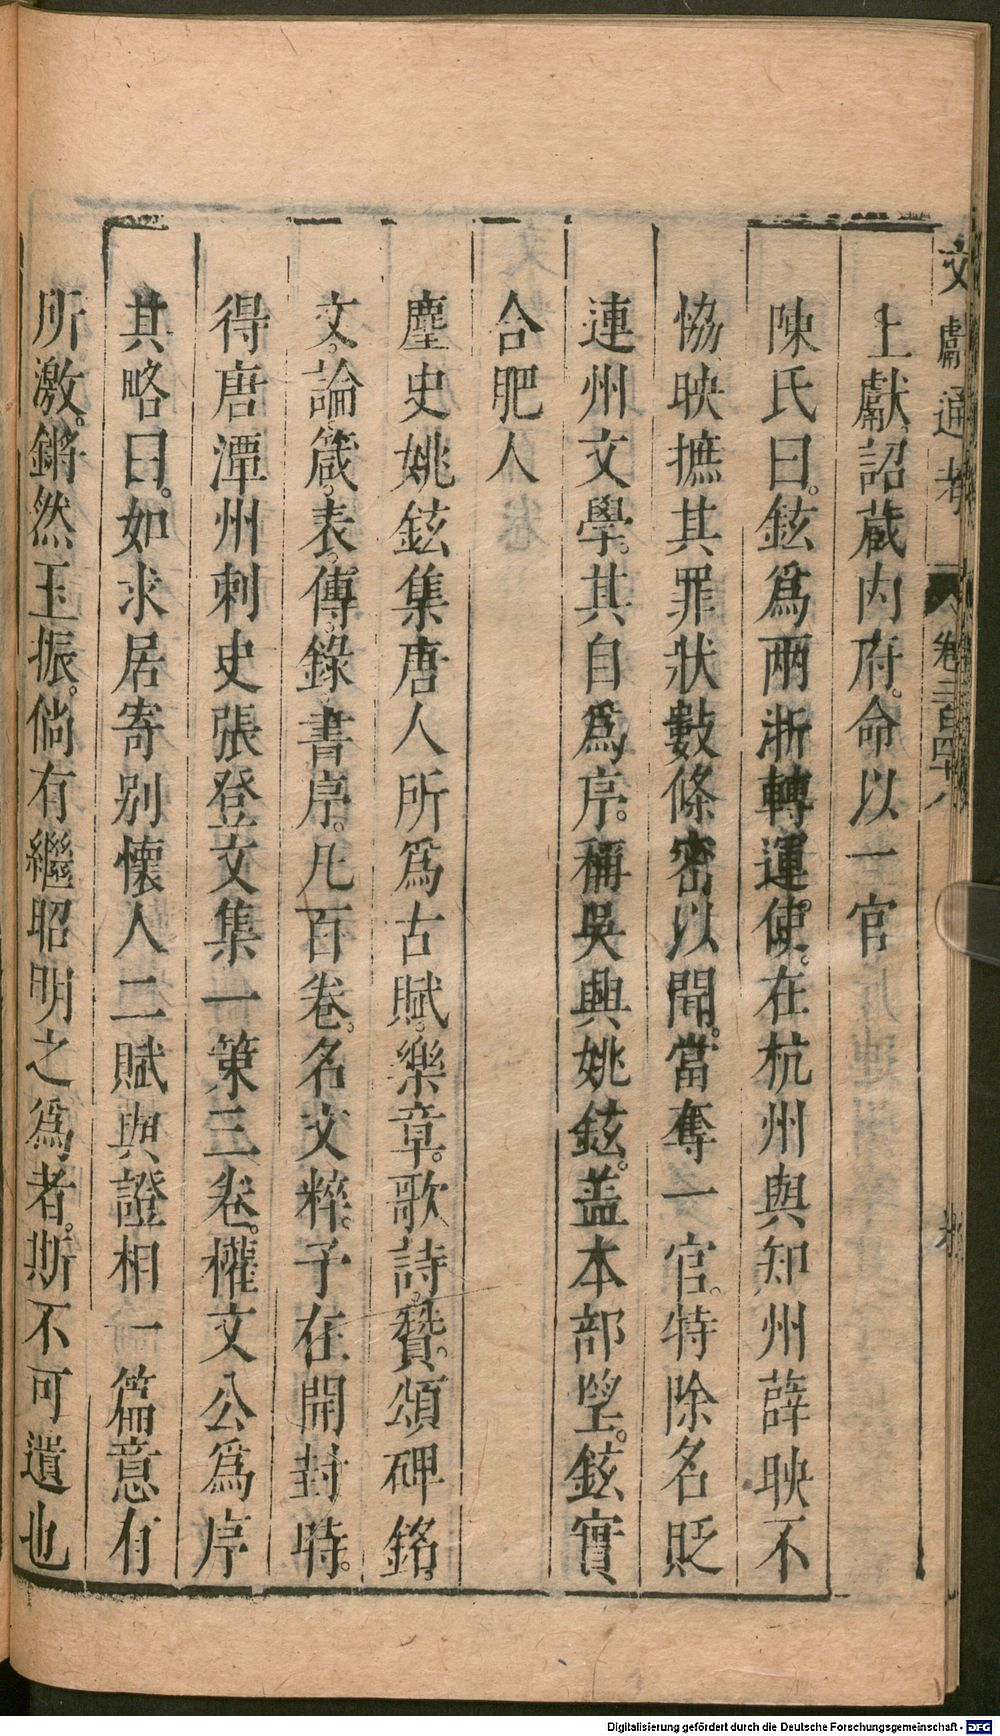 文獻通考 卷二百四十八
上獻詔藏內府。命以一官
陳氏曰。鉉爲兩浙轉運使。在杭州與知州薛映不
協映摭其罪狀數條密以聞。當奪一官。特除名貶
連州文學。其自爲序。稱吳興姚鉉。盖本部望。鉉實
合肥人
麈史姚鉉集唐人所爲古賦。樂章。歌詩。贊。頌碑銘。
文。論箴。表。傳錄書序。凡百卷。名文粹。予在開封時。
得唐潭州刺史張登文集一第三卷。權文公爲序
其略曰。如求居寄别懷人二賦與證相一篇意有
所激。鏘然玉振。倘有繼昭明之爲者。斯不可遺也
Digitalisierung gefördert durch die Deutsche Forschungsgemeinschaft - DFG